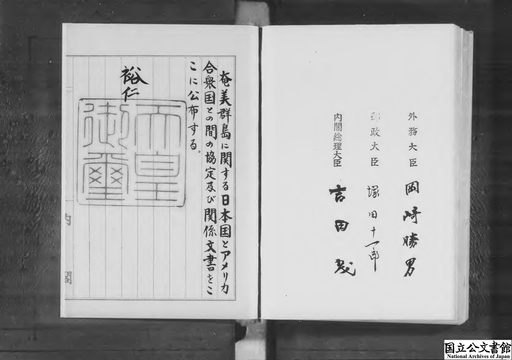 外務大臣 岡崎勝男
郵政大臣 塚田十一郎
内閣総理大臣 吉田茂
奄美群島に関する日本国とアメリカ
合衆国との間の協定及び関係文書をこ
こに公布する。
裕仁
天皇
御璽
内閣
国立公文書館
National Archives of Japan